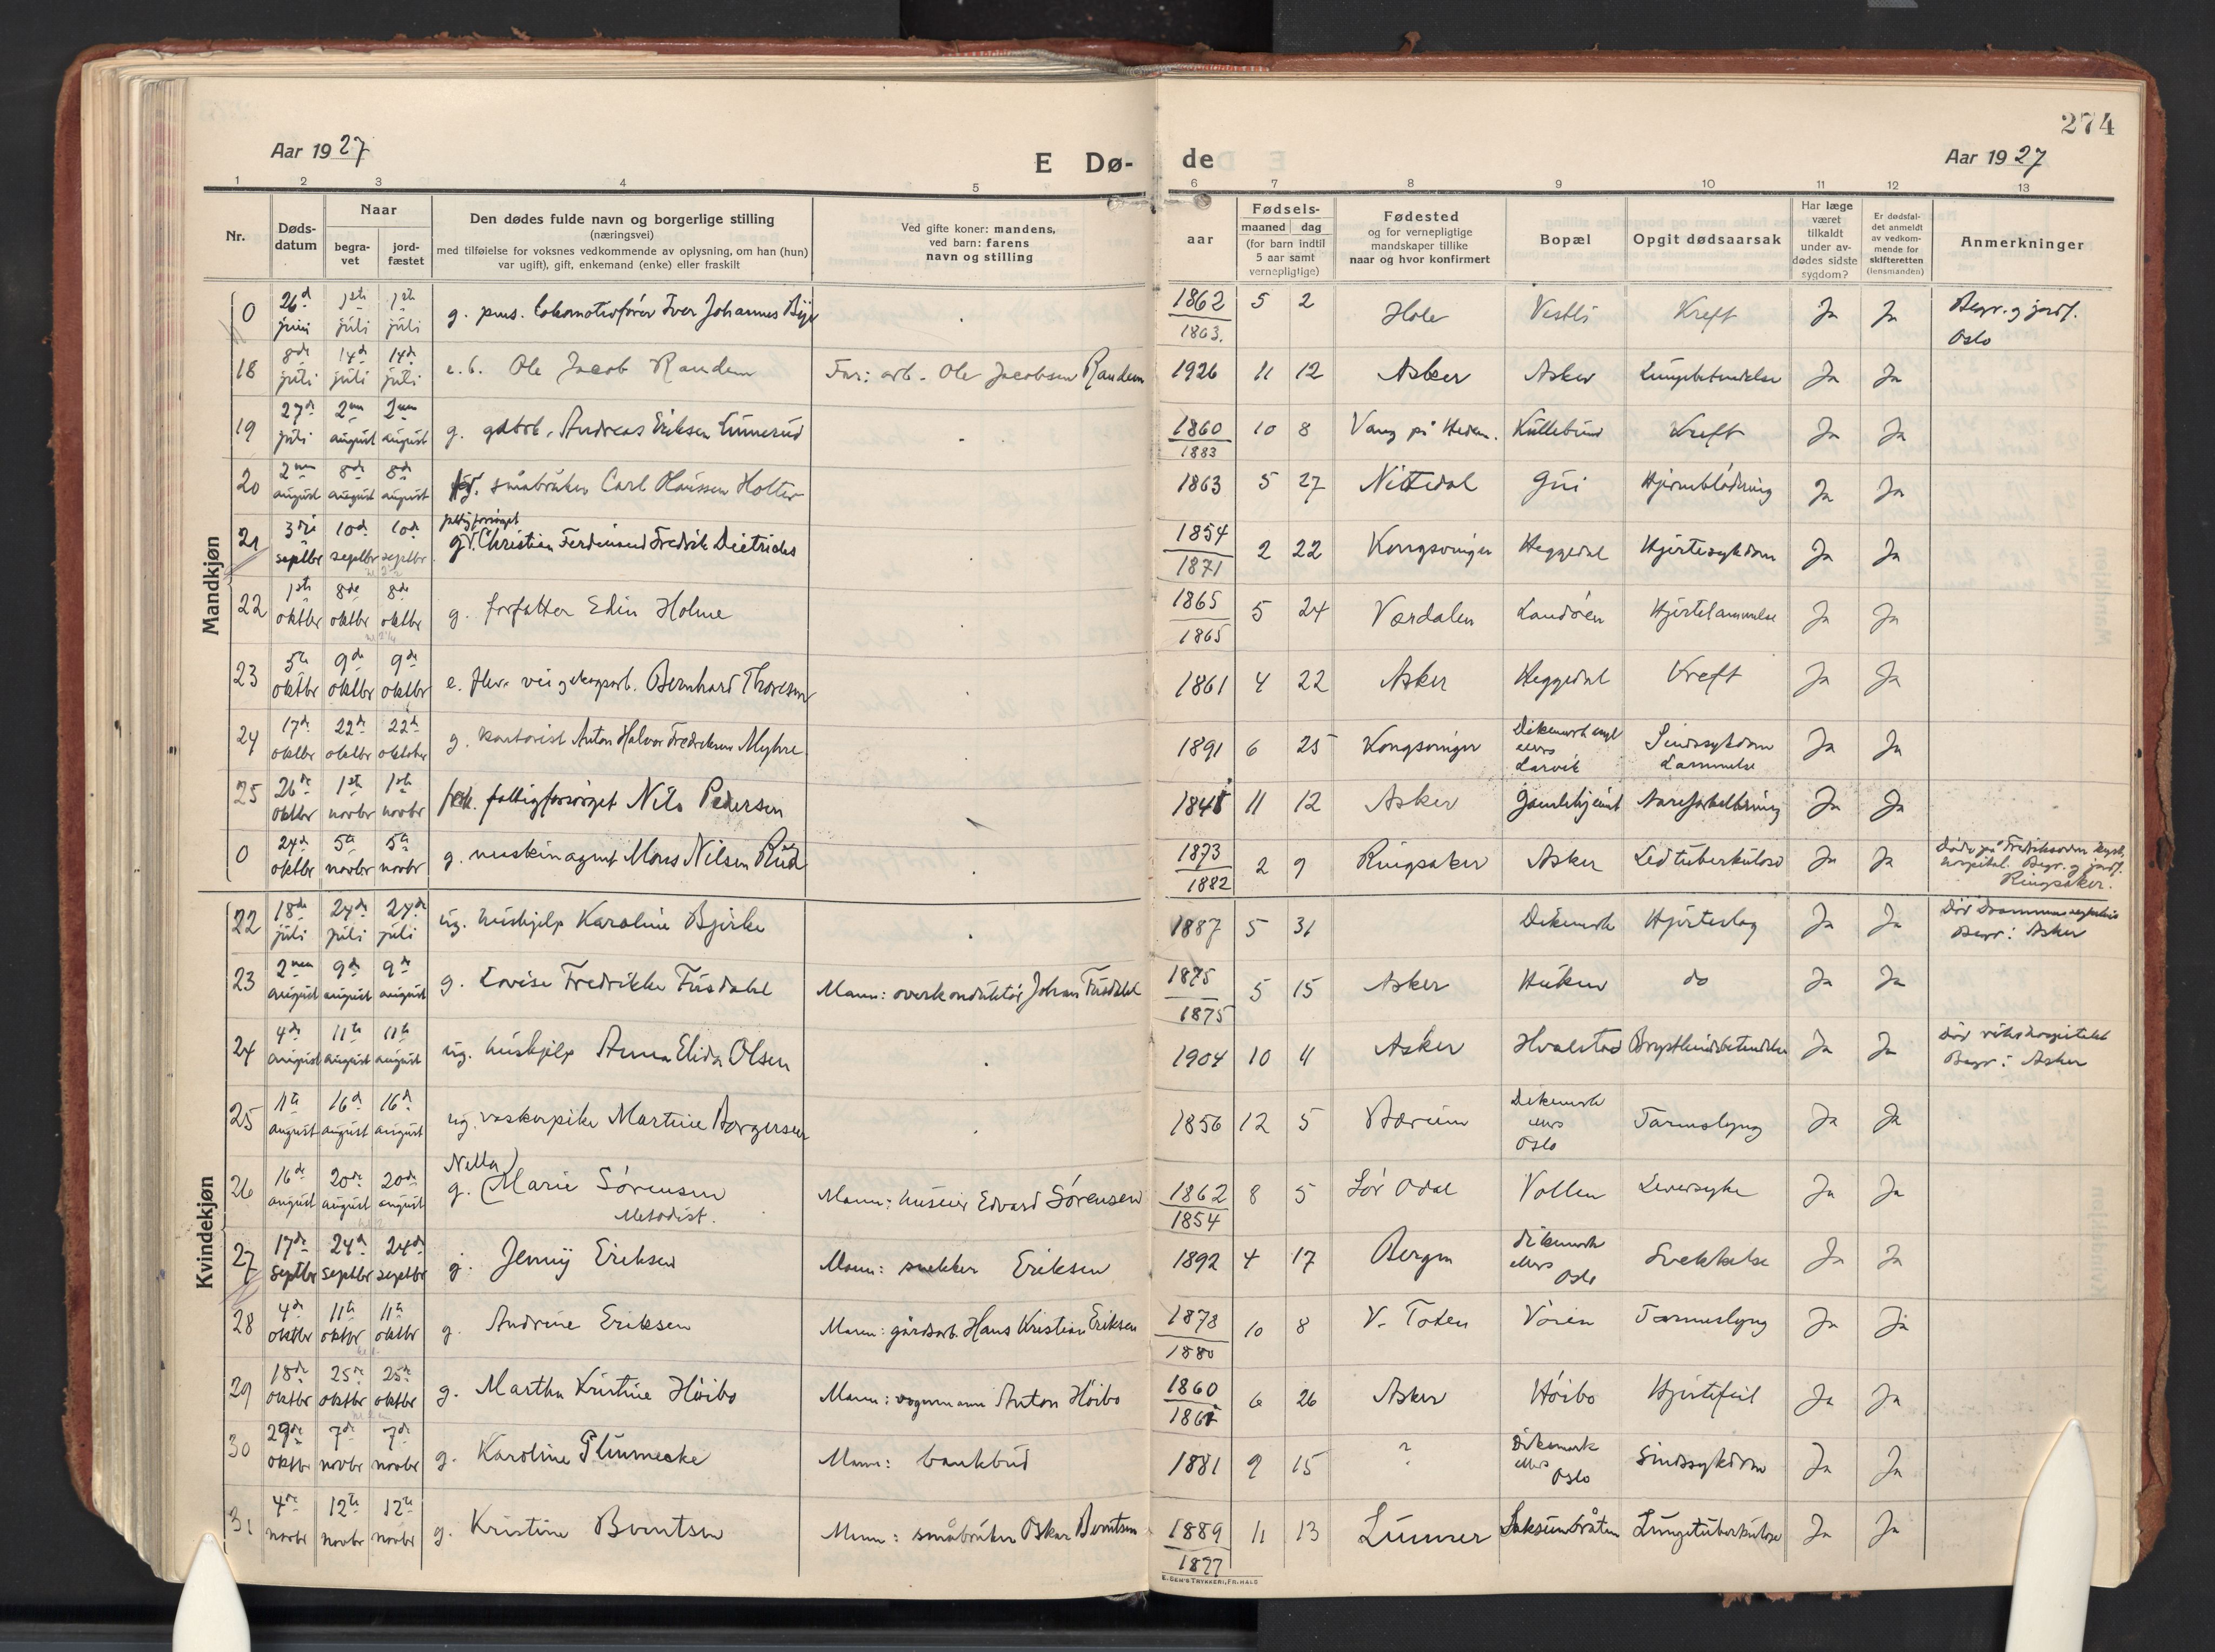 274
Aar 1927
E Dø-
de
Aar 1927
1 2 3 4 5 6 7 8 9 10 11 12 13
Nr.
Døds-
datum
Naar
begra-
vet
jord-
fæstet
Den dødes fulde navn og borgerlige stilling
(næringsvei)
med tilføielse for voksnes vedkommende av oplysning, om han (hun)
var ugift), gift, enkemand (enke) eller fraskilt
Ved gifte koner: mandens,
ved barn: farens
navn og stilling
aar
Fødsels-
maaned dag
(for barn indtil
5 aar samt
vernepligtige)
Fødested
og for vernepligtige
mandskaper tillike
naar og hvor konfirmert
Bopæl
Opgit dødsaarsak
Har læge
været
tilkaldt
under av-
dødes sidste
sygdom?
Er dødsfal-
det anmeldt
av vedkom-
mende for
skifteretten
(lensmanden)
Anmerkninger
Mandkjøn
0 26d juni 1ste juli 1ste juli g. pens. lokomotivfører Iver Johannes 1862 5 2 Hole Vestli Kreft Ja Ja Begr. og jordf.
1863. Oslo
18 8de juli 14de juli 14de juli e.b. Ole Jacob Randem Far: arb. Ole Jacobsen Randem 1926 11 12 Asker Asker Lungebetendelse Ja Ja
19 27de juli 2nen august 2nen august g. Andreas Eriksen 1860 10 8 Vang på Hedem. Kullebund Kreft Ja Ja
1883
20 2nen august 8de august 8de august småbruker Carl Olaussen Holter 1863 5 27 Nittedal Gui Hjerneblødning Ja Ja
fattigforsørget
21 3dje septbr 10de septbr 10de septbr g. Christian Ferdinand Fredrik Dietrichs 1854 2 22 Kongsvinger Heggedal Hjertesykdom Ja Ja
1871
22 1ste oktbr 8de oktbr 8de oktbr g. forfatter Edin Holme 1865 5 24 Værdalen Landøen Hjertelammelse Ja Ja
1865
23 5te oktbr 9de oktbr 9de oktbr e. fhv. vei og skogsarb. Bernhard Thoresen 1861 4 22 Asker Heggedal Kreft Ja Ja
24 17de oktbr 22de oktbr 22de oktober g. kontorist Anton Halvor Fredriksen Myhre 1891 6 25 Kongsvinger Dikemark asyl Sindssykdom Ja Ja
ellers
Larvik Lammelse
25 26de oktbr 1ste novbr 1ste novbr fattigforsørget Nils Pedersen 11 12 Asker Gamlehjemt Aareforkalkning Ja Ja
0 24de oktbr 5te novbr 5te novbr g. maskinagent Mons Nilsen Rud 1873 2 9 Ringsaker Asker Ledtuberkulose Ja Ja Døde på Fredriksværn kyst.
1882 hospital. Begr. og jordf.
Ringsaker.
Kvindekjøn
22 18de juli 24de juli 24de juli ug. hushjelp Karoline Bjerke 1887 5 31 Dikemark Hjerteslag Ja Ja Død Drammens sykehus
Begr: Asker
23 2nen august 9de august 9de august g. Lovise Fredrikke Fusdahl Mann: overkonduktør Johan Fusdahl 1875 5 15 Asker do Ja Ja
1875
24 4de august 11te august 11te august ug. hushjelp Anna Elida Olsen 1904 10 11 Asker Hvalstad Brysthindebetendelse Ja Ja Død rikshospitalet
Begr: Asker
25 11te august 16de august 16de august ug. vaskerpike Martine Borgersen 1856 12 5 Bærum Dikemark Tarmslyng Ja Ja
ellers
Oslo
Nella)
26 16de august 20de august 20de august g. (Marie Sørensen Mann: huseier Edvard Sørensen 1862 8 5 Sør Odal Vollen Leversyke Ja Ja
Metodist. 1854
27 17de septbr 24de septbr 24de septbr g. Jenny Eriksen Mann: snekker Eriksen 1892 4 17 Bergen Dikemark Svekkelse Ja Ja
ellers
Oslo
28 4de oktbr 11te oktbr 11te oktbr g. Andrine Eriksen Mann: gårdsarb. Hans Kristian Eriksen 1878 10 8 V. Toten Vøien Tarmslyng Ja Ja
1880
29 18de oktbr 25de oktbr 25de oktbr g. Martha Kristine Høibo Mann: vognmann Anton Høibo 1860 6 26 Asker Høibo Hjertefeil Ja Ja
30 29de oktbr 7de novbr 7de novbr g. Karoline Plumecke Mann: bankbud 1881 9 15 ? Dikemark Sindssykdom Ja Ja
ellers
Oslo
31 4de novbr 12te novbr 12te novbr g. Kristine Berntsen Mann: småbruker Oskar Berntsen 1889 11 13 Lunner Laksumbråten Lungetuberkulose Ja Ja
1877
E. SEM'S TRYKKERI, FR.HALD